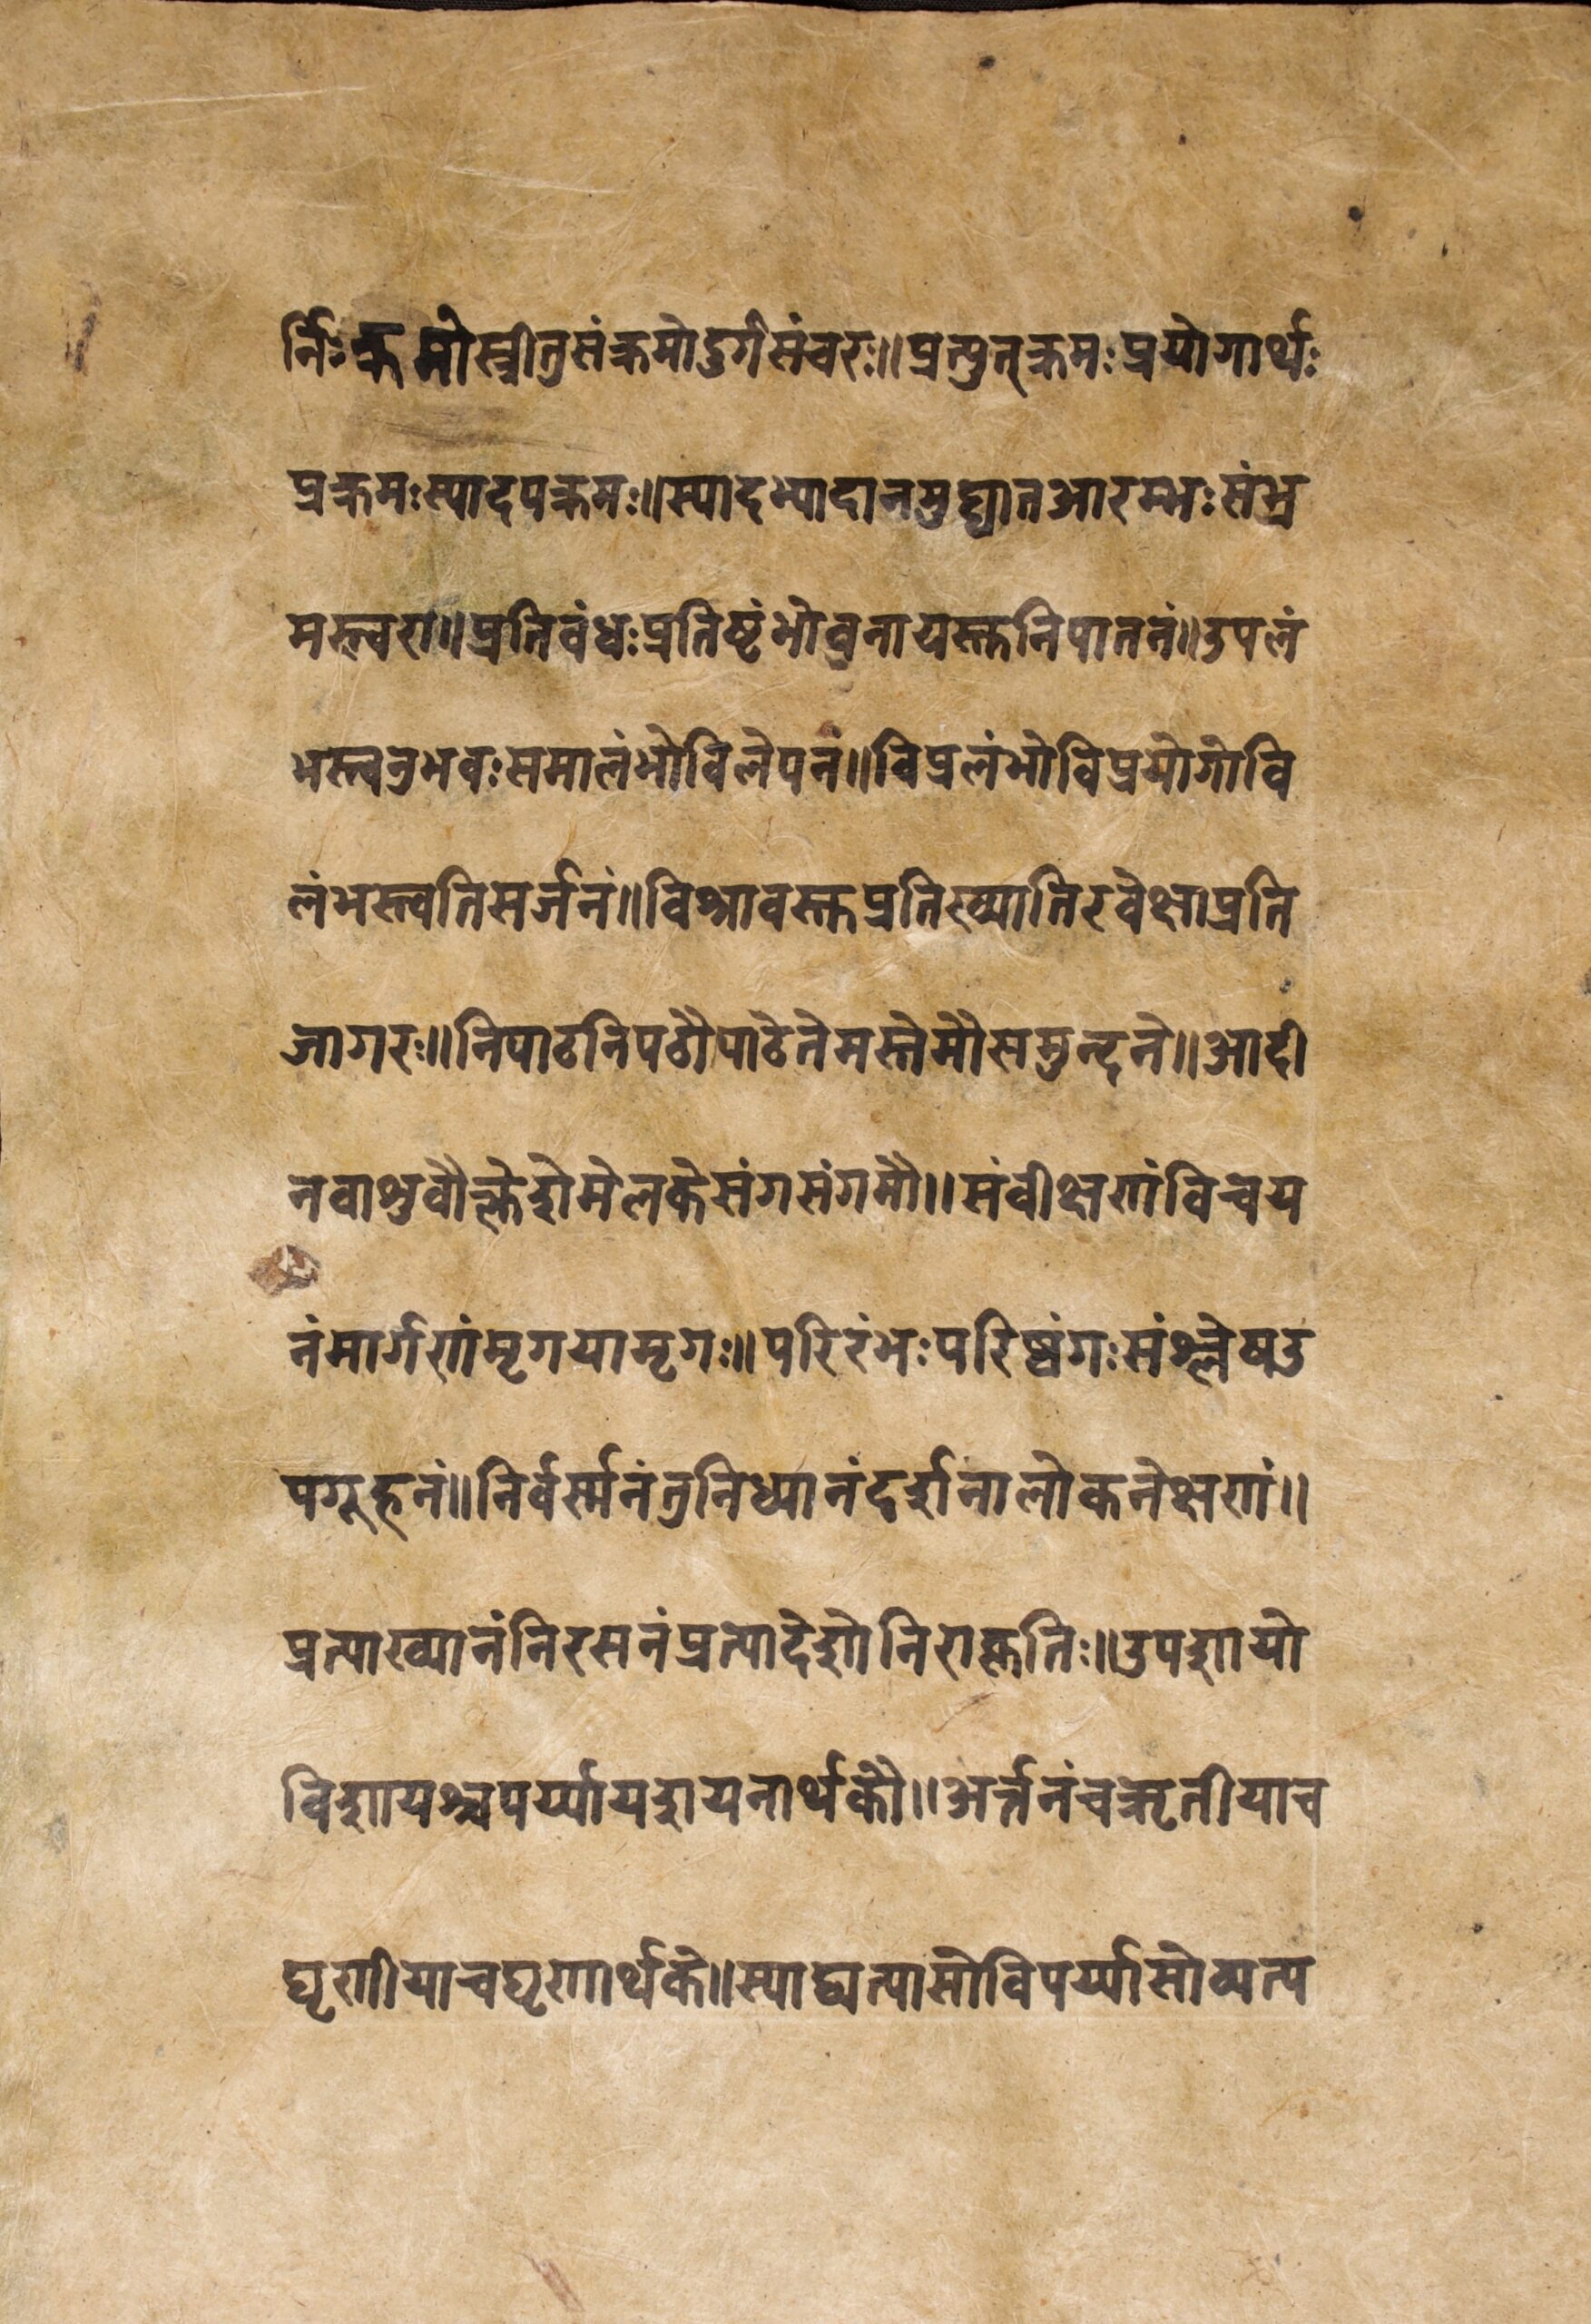 र्निःक्रमोस्त्रीतुसंक्रमोदुर्गसंचरः॥प्रत्युत्क्रमःप्रयोगार्थः
प्रक्रमःस्यादपक्रमः॥स्यादभ्यादानमुद्घातआरम्भःसंभ्र
मस्त्वरा॥प्रतिवंधःप्रतिष्टंभोवनायस्तनिपातनं॥उपलं
भस्त्वनुभवःसमालंभोविलेपनं॥विप्रलंभोविप्रयोगोवि
लंभस्त्वतिसर्जनं॥विश्रावस्तप्रतिख्यातिरवेक्षाप्रति
जागरः॥निपाठनिपठौपाठेतेमस्तेमौसमुन्दने॥आदी
नवाश्रवौक्लेशेमेलकेसंगसंगमौ॥संवीक्षणंविचय
नंमार्गणंमृगयामृगः॥परिरंभःपरिष्वंगःसंश्लेषउ
पगूहनं॥निर्वर्स्मनंतुनिध्यानंदर्शनालोकनेक्षणं॥
प्रत्याख्यानंनिरसनंप्रत्यादेशोनिराकृतिः॥उपशायो
विशायश्चपर्य्यायशयनार्थकौ॥अर्त्तनंचऋतीयाच
घृणीयाचघृणार्थके॥स्याद्व्यत्यासोविपर्य्यासोव्यत्य